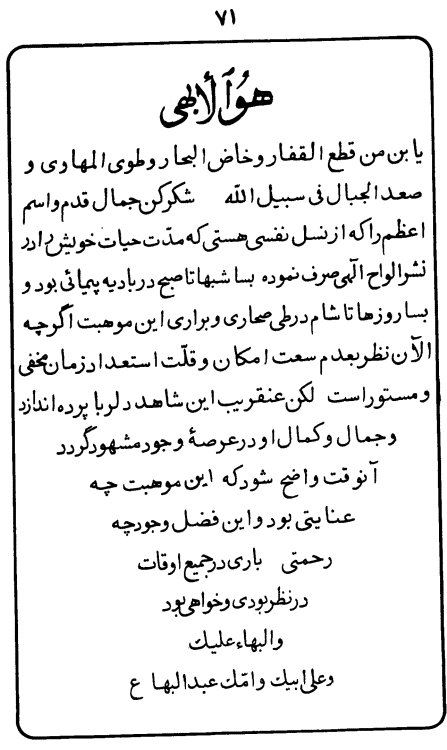 ۷۱
هوالأبهی
یا بن من قطع القفار و خاض البحار و طوی المهاوی و
صعد الجبال فی سبیل الله شکر کن جمال قدم و اسم
اعظم را که از نسل نفسی هستی که مدّت حیات خویش را در
نشر الواح الهی صرف نموده بسا شبها تا صبح در بادیه پیمائی بود و
بسا روزها تا شام در طی صحاری و براری این موهبت اگر چه
الآن نظر بعدم سعت امکان و قلّت استعداد زمان مخفی
و مستور است لکن عنقریب این شاهد دلربا پرده اندازد
و جمال و کمال او در عرصهٔ وجود مشهود گردد
آنوقت واضح شود که این موهبت چه
عنایتی بود و این فضل وجود چه
رحمتی باری در جمیع اوقات
در نظر بودی و خواهی بود
والبهاء علیك
و علی ابیك و امّك عبدالبها ع